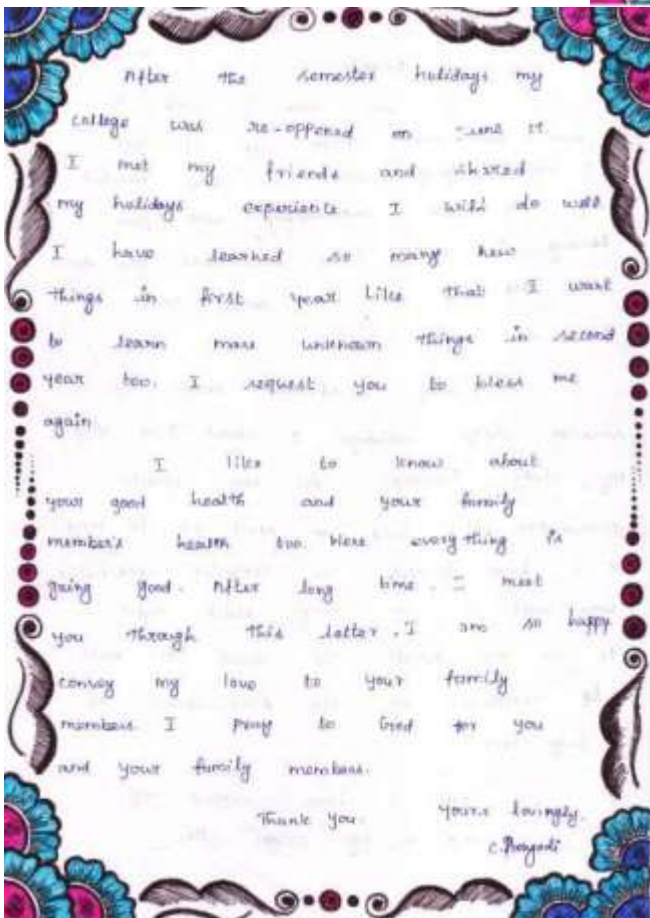 After the semester holidays my
college was re-oppened on June
I met my friends and shared
my holidays experience I will do well
I have learned so many new
things in first year like that I want
to learn more unknown things in second
year too. I request you to bless me
again
I like to know about
your good health and your family
member's health too. Here every thing is
going good. After long time. I meet
you through this letter. I am so happy
convey my love to your family
members I pray to God for you
and your family members.
Thank you. yours lovingly.
C.